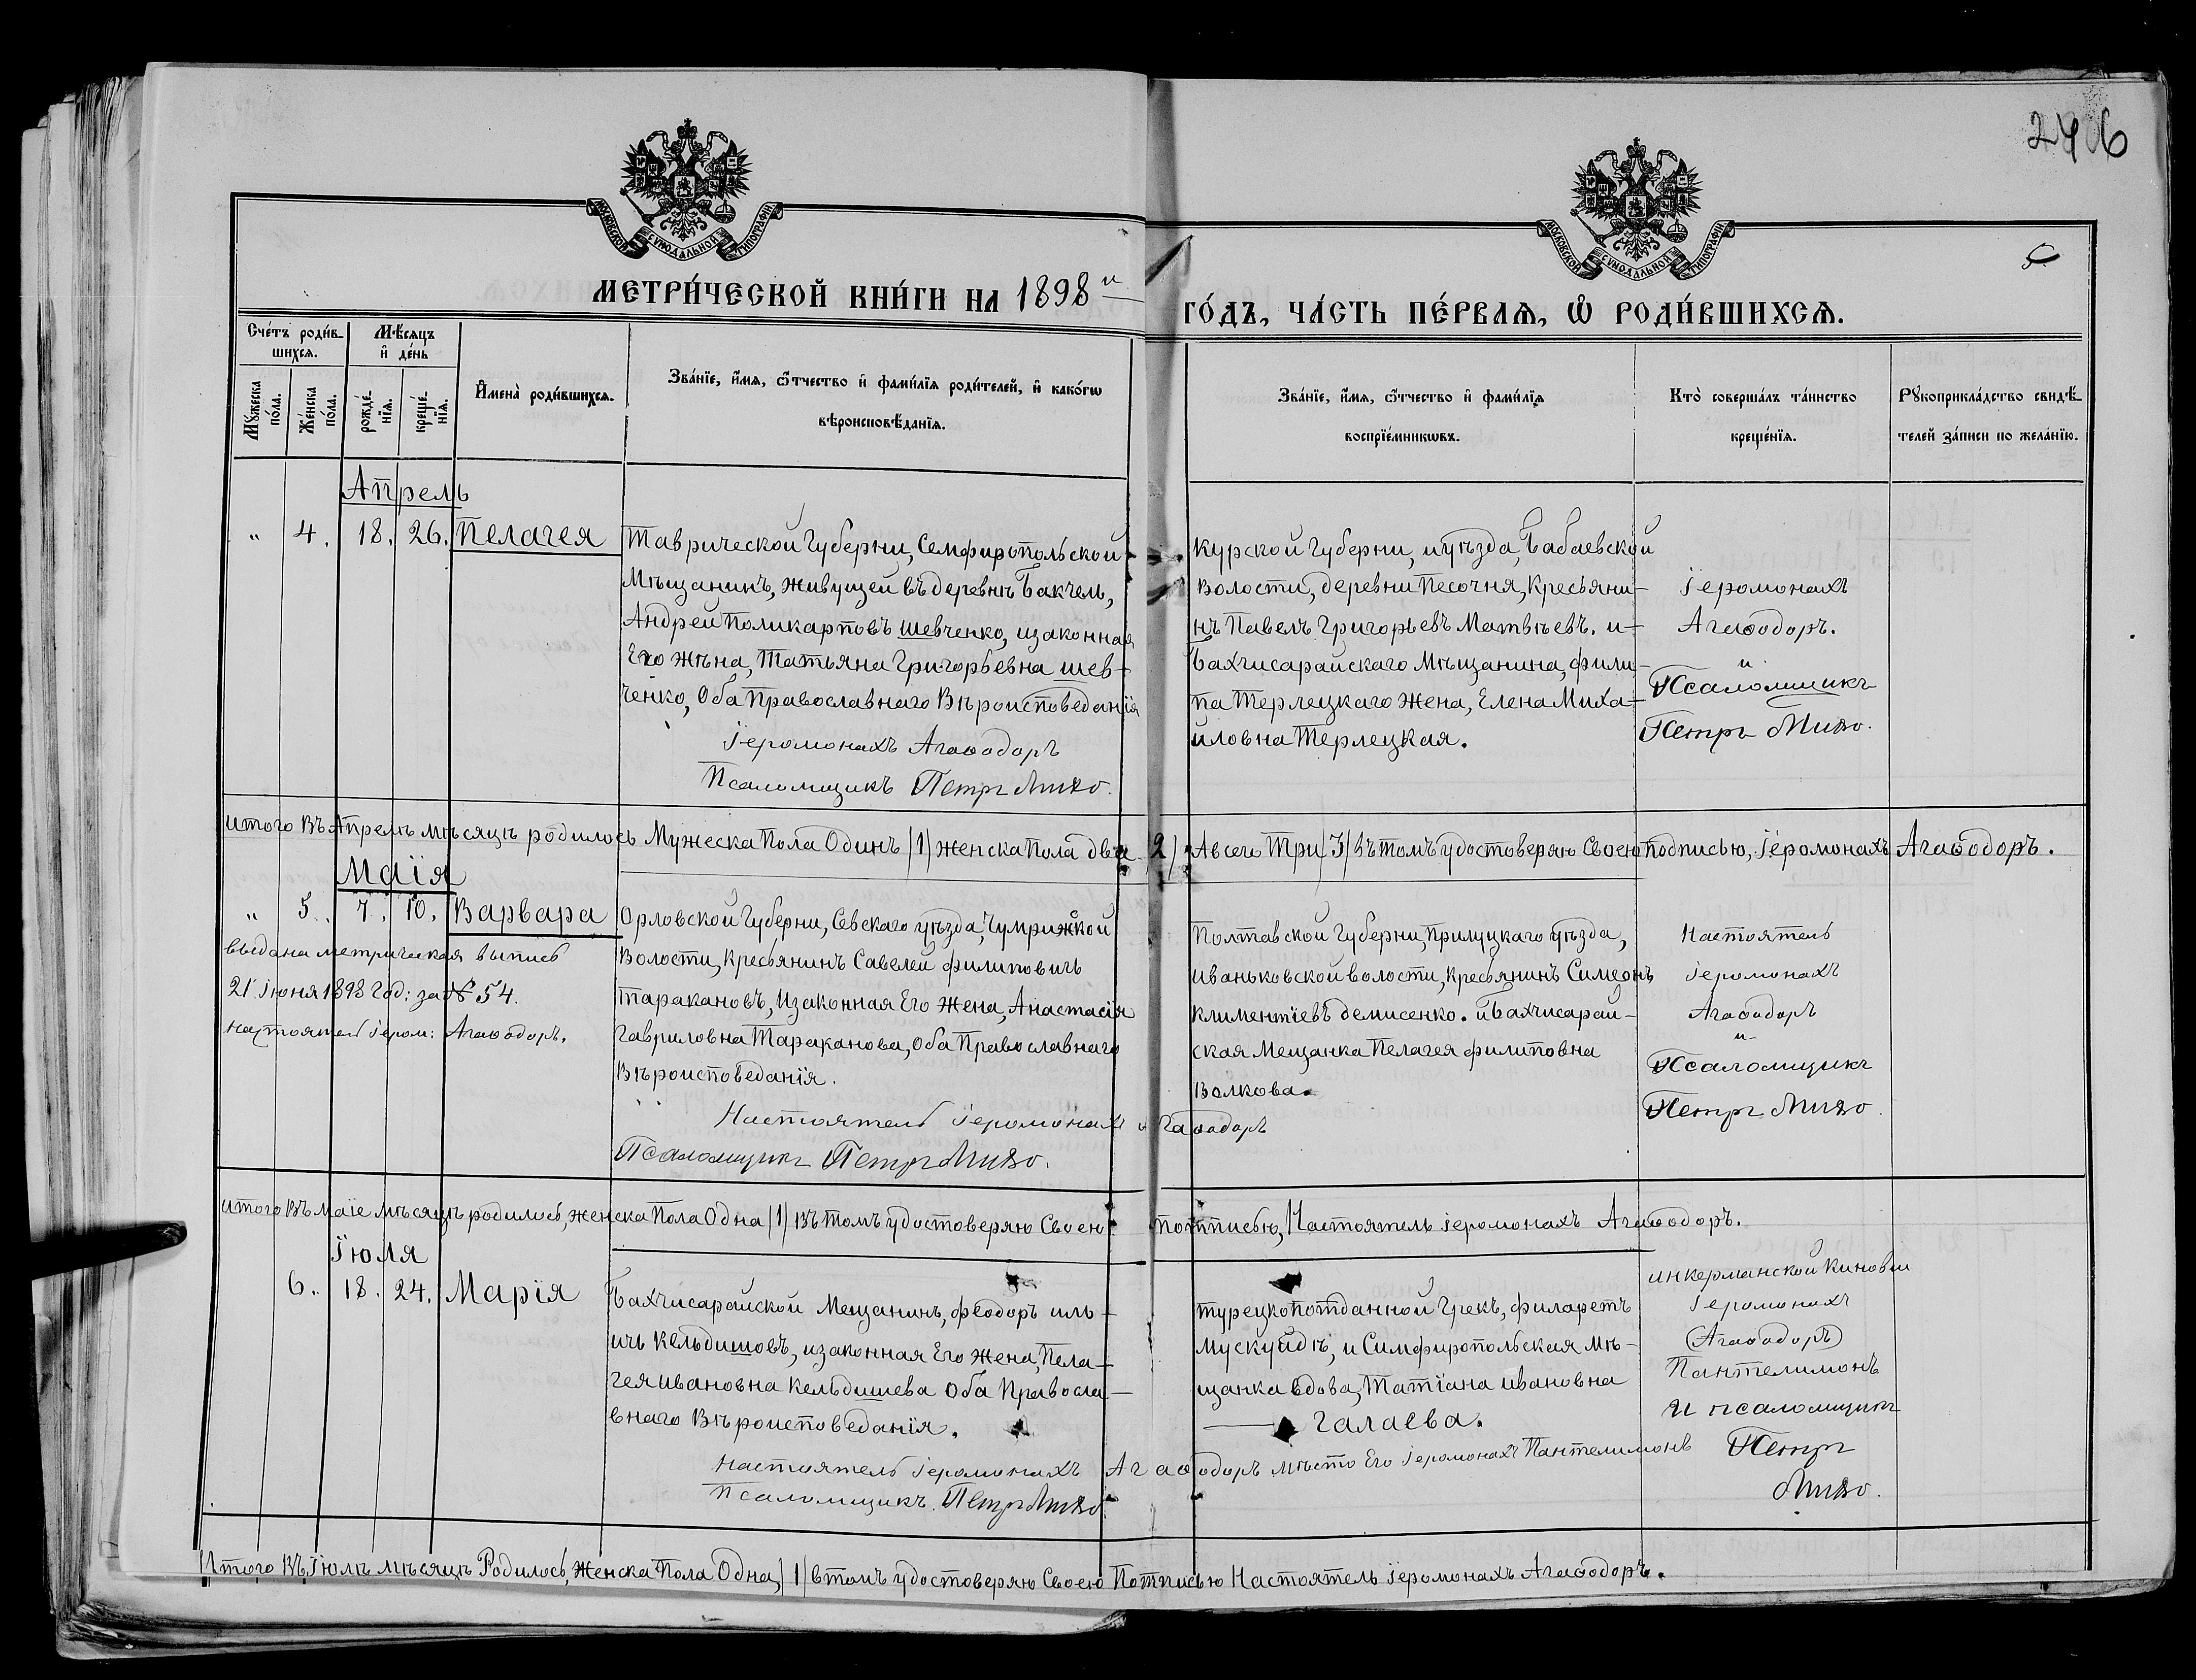 246
5
МОСКОВСКОЙ СѴНОДАЛЬНОЙ ТИПОГРАФІИ.
МОСКОВСКОЙ СѴНОДАЛЬНОЙ ТИПОГРАФІИ.
МЕТРИ́ЧЕСКОЙ КНИ́ГИ НА 1898й ГО́ДЪ, ЧА́СТЬ ПЕ́РВАѦ, Ѡ РОДИ́ВШИХСѦ.
Сче́тъ роди́в-
шихсѧ.
Мѣ́сѧцъ
и҆ де́нь
Мꙋ́жеска
по́ла.
Же́нска
по́ла.
рожде́-
нїѧ.
креще́-
нїѧ.
И҆мена̀ роди́вшихсѧ.
Зва́нїе, и҆́мѧ, ѻ҆́тчество и҆ фами́лїѧ роди́телей, и҆ како́гѡ
вѣроисповѣ́данїѧ.
Зва́нїе, и҆́мѧ, ѻ҆́тчество и҆ фами́лїѧ
воспрїе́мникѡвъ.
Кто̀ соверша́лъ та́инство
креще́нїѧ.
Рꙋкоприкла́дство свидѣ́-
телей за́писи по жела́нїю.
Апрель
„ 4. 18. 26. Пелагея
Таврической Губерни, Семфиропольской
Мѣщанинъ, живущей въ деревнѣ Бакчель,
Андрей Поликарповъ Шевченко, изаконная
Его Жѣна, Татьяна Григорьевна Шев-
ченко, Оба Православнаго Вѣроисповеданія
Іеромонахъ Агаѳодоръ
Псаломщикъ Петръ
Курской Губерни, иуѣзда, Бабаевской
Волости, деревни Песочня, Кресьяни-
нъ Павелъ Григорьевъ Матвѣевъ. и-
Бахчисарайскаго Мѣщанина, Фили-
па Терлецкаго Жена, Елена Миха-
йловна Терлецкая.
Іеромонахъ
Агаѳодоръ.
и
Псаломщикъ
Петръ
итого Въ Апрелѣ мѣсяцѣ родилось Мужеска Пола Одинъ /1/ женска Пола два /2/ Авсего Три /3/ Вътомъ удостоверяю Своею подписью, Іеромонахъ Агаѳодоръ.
Маія
„ 5. 7. 10. Варвара
выдана метрическая выпись
21 Іюня 1898 год: за № 54.
Настоятель Іером: Агаѳодоръ.
Орловской Губерни, Севскаго уѣзда,
Волости, Кресьянинъ Савелей Филиповичъ
Таракановъ, Изаконная Его Жена, Анастасія
Гавриловна Тараканова, Оба Православнаго
Вѣроисповеданія.
Настоятель Іеромонахъ Агаѳодоръ
Псаломщикъ Петръ
Полтавской Губерни, Прилуцкаго уѣзда,
Иваньковской волости, Кресьянинъ Симеонъ
Климентіевъ Демисенко. и Бахчисарай-
ская Мещанка Пелагея Филиповна
Волкова.
Настоятель
Іеромонахъ
Агаѳодоръ
и-
Псаломщикъ
Петръ
итого Въ Маіе мѣсяцѣ родилось, женска Пола Одна /1/ Въ томъ удостоверяю Своею потписью, Настоятель Іеромонахъ Агаѳодоръ.
Іюля
6. 18. 24. Марія
Бахчисарайской Мещанинъ, Феодоръ иль-
ичъ Кельдишовъ, изаконная Его Жена, Пела-
гея ивановна Кельдишева Оба Правосла-
внаго Вѣроисповеданія.
Настоятель Іеромонахъ Агаѳодоръ мѣсто Его Іеромонахъ Пантелимонъ
Псаломщикъ. Петръ
турецкопотданной Грекъ, Филаретъ
и Симфиропольская Мѣ-
щанка вдова, Татіана ивановна
Галаева.
инкерманской Киновии
Іеромонахъ
(Агаѳодоръ)
Пантелимонъ
и псаломщикъ
Петръ
Итого Въ Іюлѣ мѣсяцѣ Родилось, Женска Пола Одна, /1/ втомъ удостоверяю Своею Потписью Настоятель Іеромонахъ Агаѳодоръ.